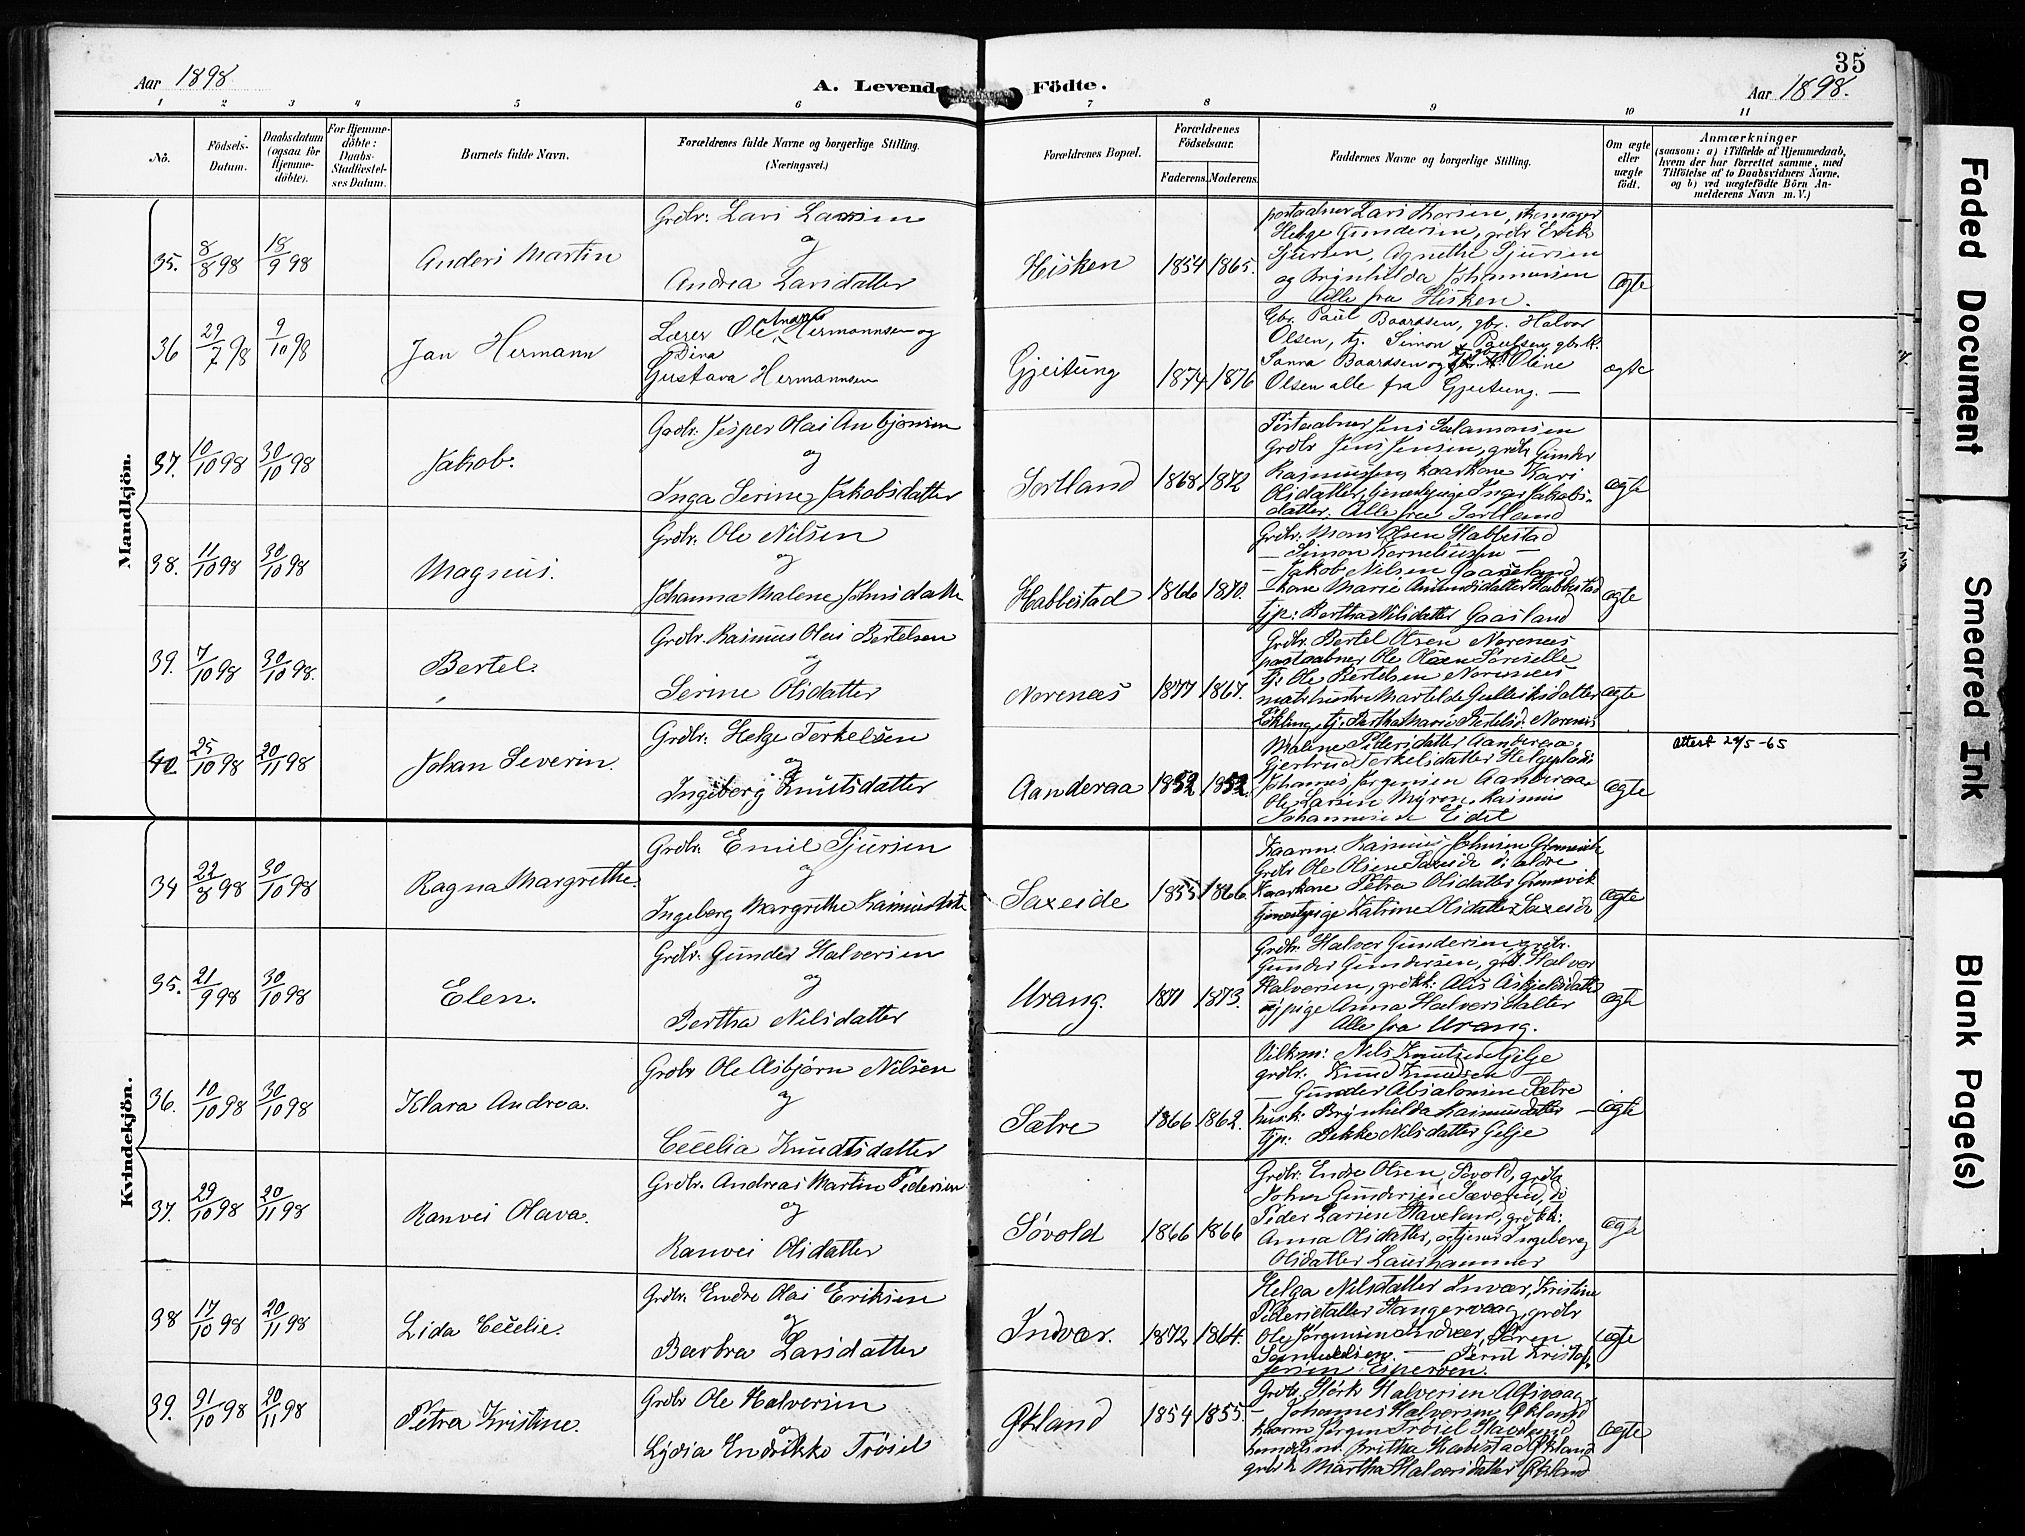 35
Aar 1898
A. Levende Födte.
Aar 1898.
1 2 3 4 5 6 7 8 9 10 11
No.
Födsels-Datum.
Daabsdatum (ogsaa for Hjemme-döbte).
For Hjemme-döbte: Daabs-Stadfæstel-ses Datum.
Barnets fulde Navn.
Forældrenes fulde Navne og borgerlige Stilling. (Næringsvei.)
Forældrenes Bopæl.
Forældrenes Födselsaar.
Faderens. Moderens.
Faddernes Navne og borgerlige Stilling.
Om ægte eller uægte födt.
Anmærkninger
(saasom: a) i Tilfælde af Hjemmedaab,
hvem der har forrettet samme, med
Tilföielse af to Daabsvidners Navne,
og b) ved uægtefödte Börn An-
melderens Navn m. V.)
Mandkjön.
35. 8/8 98 18/9 98 Anders Martin
Grdbr. Lars Larsen
og
Andrea Larsdatter
Hisken 1854 1865.
postaabner Lars Thorsen,
Helge Gundersen, grdbr Erik
Sjursen, Agnethe Sjursen
og Brynhilda Johannessen
Alle fra Hisken.
ægte
36 29/7 98 9/10 98 Jan Hermann
Lærer Ole Andreas Hermannsen og
Dina
Gustava Hermannsen
Gjeitung 1874 1876
Gbr. Paul Baardsen, gbr. Halvor
Olsen, tj. Simon Paulsen, gbrk.
Sanna Baardsen og Oline
Olsen alle fra Gjeitung. —
ægte
37. 10/10 98 30/10 98 Jakob.
Grdbr. Jesper Olai Anbjørnsen
og
Inga Serine Jakobsdatter
Sortland 1868 1872
Postaabner Jens Salamonsen
Grdbr Jens Jensen, grdbr Gunder
Rasmussen, kaarkone Kari
Olsdatter, tjenestepige Inger Jakobs-
datter. Alle fra Sortland
ægte
38. 11/10 98 30/10 98 Magnus.
Grdbr. Ole Nilsen
og
Johanna Malene Johnsdatter
Habbestad 1866 1870.
Grdbr. Mons Olsen Habbestad
— Simon Korneliussen —
— Jakob Nilsen Gaasland
— kone Marie Amundsdatter Habbestad
tjp: Bertha Nilsdatter Gaasland
ægte
39. 7/10 98 30/10 98. Bertel.
Grdbr. Rasmus Olai Bertelsen
og
Serine Olsdatter
Norenæs 1877 1867.
Grdbr. Bertel Olsen Norenæs
postaabner Ole Olsen
Tj. Ole Bertelsen Norenæs
Martilde Gulleiksdatter
Løkling, tj. Bertha Marie Bertelsd. Norenæs
ægte
40 25/10 98 20/11 98 Johan Severin.
Grdbr. Helge Terkelsen
og
Ingeborg Knutsdatter
Aanderaa 1852 1852
Malene Pedersdatter Aanderaa,
Gjertrud Terkelsdatter
Johannes Jørgensen Aanderaa
Ole Larsen Myren, Rasmus
Johannesen Eidet
ægte
Attest 29/5-65
Kvindekjön.
34 22/8 98 30/10 98 Ragna Margrethe.
Grdbr. Emil Sjursen
og
Ingeborg Margrethe Rasmusdatter
Saxeide 1855 1866.
Kaarm. Rasmus Johnsen
Grdbr Ole Olsen Saxeide d: ældre
Kaarkone Petra Olsdatter
tjenestepige Katrine Olsdatter Saxeide
ægte
35. 21/9 98 30/10 98 Elen.
Grdbr. Gunder Halversen
og
Bertha Nilsdatter
Urang. 1871 1873.
Grdbr. Halvor Gundersen, grdbr.
Gunder Gundersen, grd. Halvor
Halversen, grdkk: Alis Askjelsdatter
tjpige Anna Halversdatter
Alle fra Urang.
ægte
36. 10/10 98 30/10 98 Klara Andrea.
Grdbr Ole Asbjørn Nilsen
og
Cecelia Knudtsdatter
Sætre 1866 1862.
Nils Knutsen Gilje
grdbr: Knud Knudsen —
— Gunder Absalonsen Sætre
husk: Brynhilda Rasmusdatter —
tjp: Bekke Nilsdatter Gilje
ægte
37. 29/10 98 20/11 98 Ranvei Olava.
Grdbr. Andreas Martin Pedersen
og
Ranvei Olsdatter
Søvold 1866 1866
Grdbr. Endre Olsen, Søvold, grdbr
John Gundersen
Peder Larsen Staveland, grdkk:
Anna Olsdatter, Ingeborg
Olsdatter Laurhammer
ægte
38 17/10 98 20/11 98 Lida Cecelie.
Grdbr. Endre Olai Eriksen
og
Barbra Larsdatter
Indvær. 1872 1864.
Helga Nilsdatter Invær, Kristine
Pedersdatter Stangervaag, grdbr
Ole Jørgensen Indvær, Søren
Samuelsen — Bernt Kristof-
fersen
ægte
39. 31/10 98 20/11 98 Petra Kristine.
Grdbr Ole Halversen
og
Lydia Endrikke Trøiel
Økland 1854 1855.
Grdbr. Størk Halversen Alfsvaag
— Johannes Halversen Økland
kaarm Jørgen Trøiel
Britha Habbestad Økland
grdbrk Martha Halversdatter Økland
ægte
Faded Document
Smeared Ink
Blank Page(s)